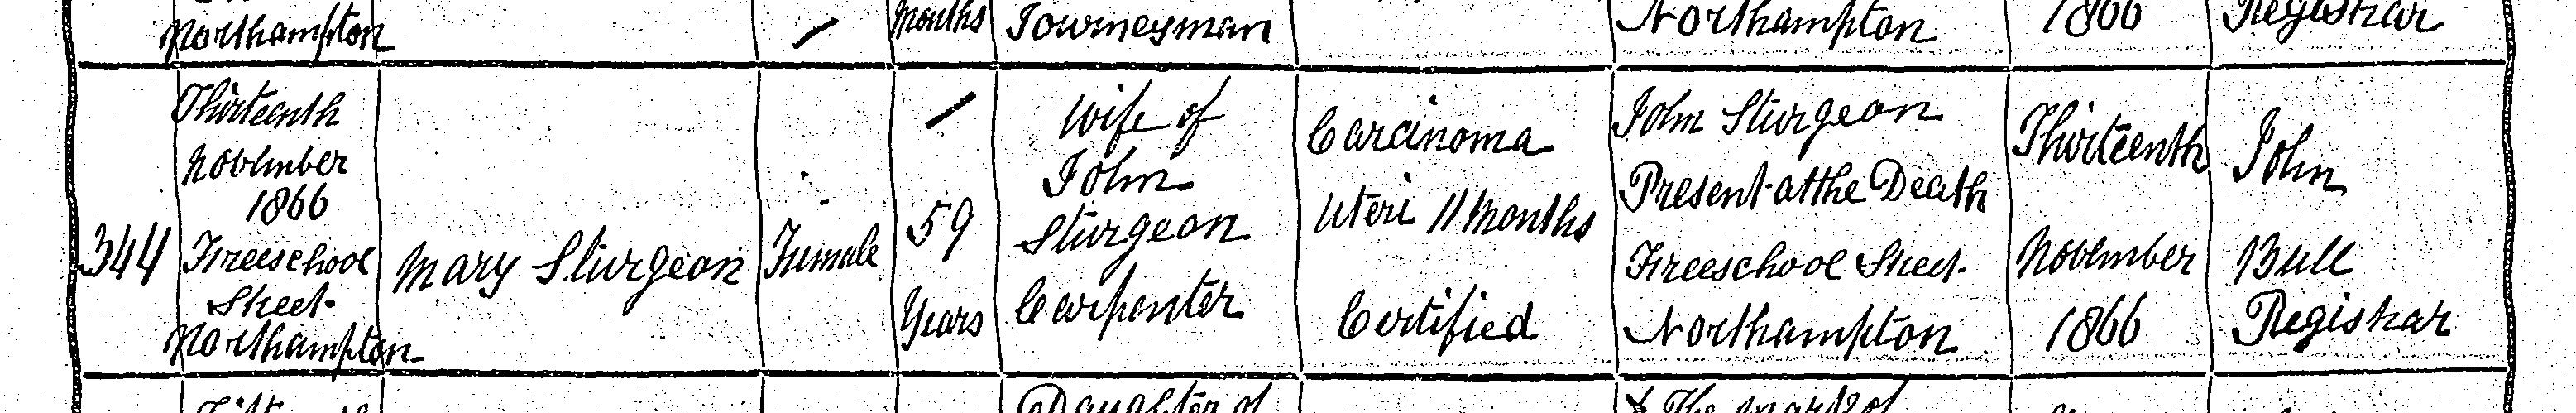 Northampton
/
Months
Journeyman
Northampton
1866
Registrar
344
Thirteenth
November
1866
Freeschool
Street
Northampton
Mary Sturgeon
Female
/
59
Years
Wife of
John
Sturgeon
Carpenter
Carcinoma
Uteri 11 Months
Certified
John Sturgeon
Present at the Death
Freeschool Street
Northampton
Thirteenth
November
1866
John
Bull
Registrar
Daughter of
X The mark of